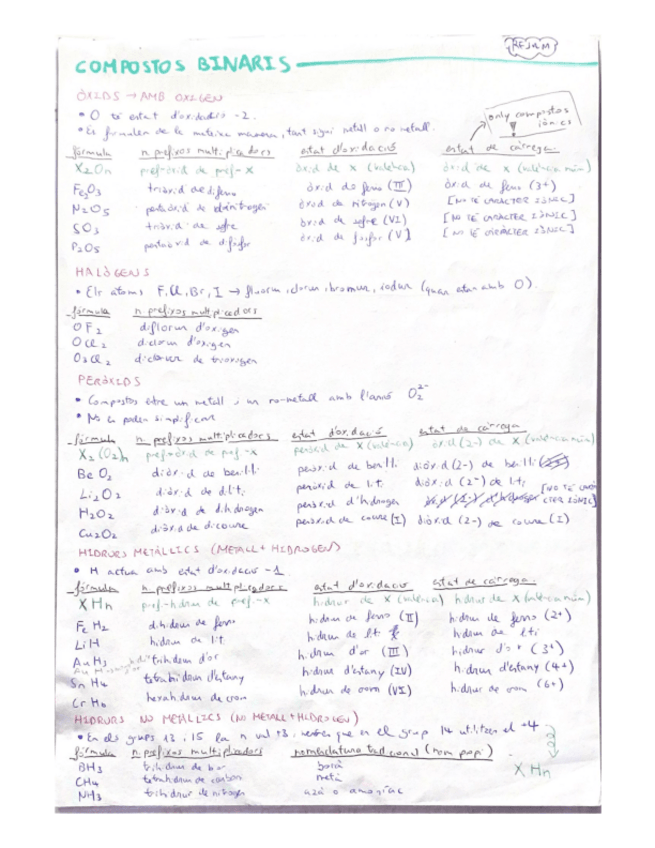 REJAM
COMPOSTOS BINARIS
ÒXIDS → AMB OXIGEN
• O té estat d'oxidació -2.
• Es formulen de la mateixa manera, tant sigui metall o no metall.
only compostos iònics
fórmula n prefixos multiplicadors estat d'oxidació estat de càrrega
X2On pref-òxid de pref-X òxid de X (valència) òxid de X (valència num)
Fe2O3 triòxid de diferro òxid de ferro (III) òxid de ferro (3+)
N2O5 pentaòxid de dinitrogen òxid de nitrogen (V) [NO TÉ CARÀCTER IÒNIC]
SO3 triòxid de sofre òxid de sofre (VI) [NO TÉ CARÀCTER IÒNIC]
P2O5 pentaòxid de difòsfor òxid de fosfor (V) [NO TÉ CARÀCTER IÒNIC]
HALÒGENS
• Els àtoms F, Cl, Br, I → fluorur, clorur, bromur, iodur (quan estan amb O).
fórmula n prefixos multiplicadors
OF2 difluorur d'oxigen
OCl2 diclorur d'oxigen
O3Cl2 diclorur de trioxigen
PERÒXIDS
• Compostos entre un metall i un no-metall amb l'anió O2 2-
• No es poden simplificar
fórmula n prefixos multiplicadors estat d'oxidació estat de càrrega
X2(O2)n pref-òxid de pref-X peròxid de X (valència) òxid (2-) de X (valència num)
BeO2 diòxid de beril·li peròxid de beril·li diòxid (2-) de beril·li
Li2O2 diòxid de diliti peròxid de liti diòxid (2-) de liti
H2O2 diòxid de dihidrogen peròxid d'hidrogen [NO TÉ CARÀCTER IÒNIC]
Cu2O2 diòxid de dicoure peròxid de coure (I) diòxid (2-) de coure (I)
HIDRURS METÀL·LICS (METALL + HIDROGEN)
• H actua amb estat d'oxidació -1.
fórmula n prefixos multiplicadors estat d'oxidació estat de càrrega.
XHn pref-hidrur de pref-X hidrur de X (valència) hidrur de X (valència num)
FeH2 dihidrur de ferro hidrur de ferro (II) hidrur de ferro (2+)
LiH hidrur de liti hidrur de liti hidrur de liti
AuH3 trihidrur d'or hidrur d'or (III) hidrur d'or (3+)
SnH4 tetrahidrur d'estany hidrur d'estany (IV) hidrur d'estany (4+)
CrH6 hexahidrur de crom hidrur de crom (VI) hidrur de crom (6+)
HIDRURS NO METÀL·LICS (NO METALL + HIDROGEN)
• En els grups 13 i 15 la n val +3, mentre que en el grup 14 utilitzen el +4
XHn
fórmula n prefixos multiplicadors nomenclatura tradicional (nom propi)
BH3 trihidrur de bor borà
CH4 tetrahidrur de carboni metà
NH3 trihidrur de nitrogen azà o amoníac